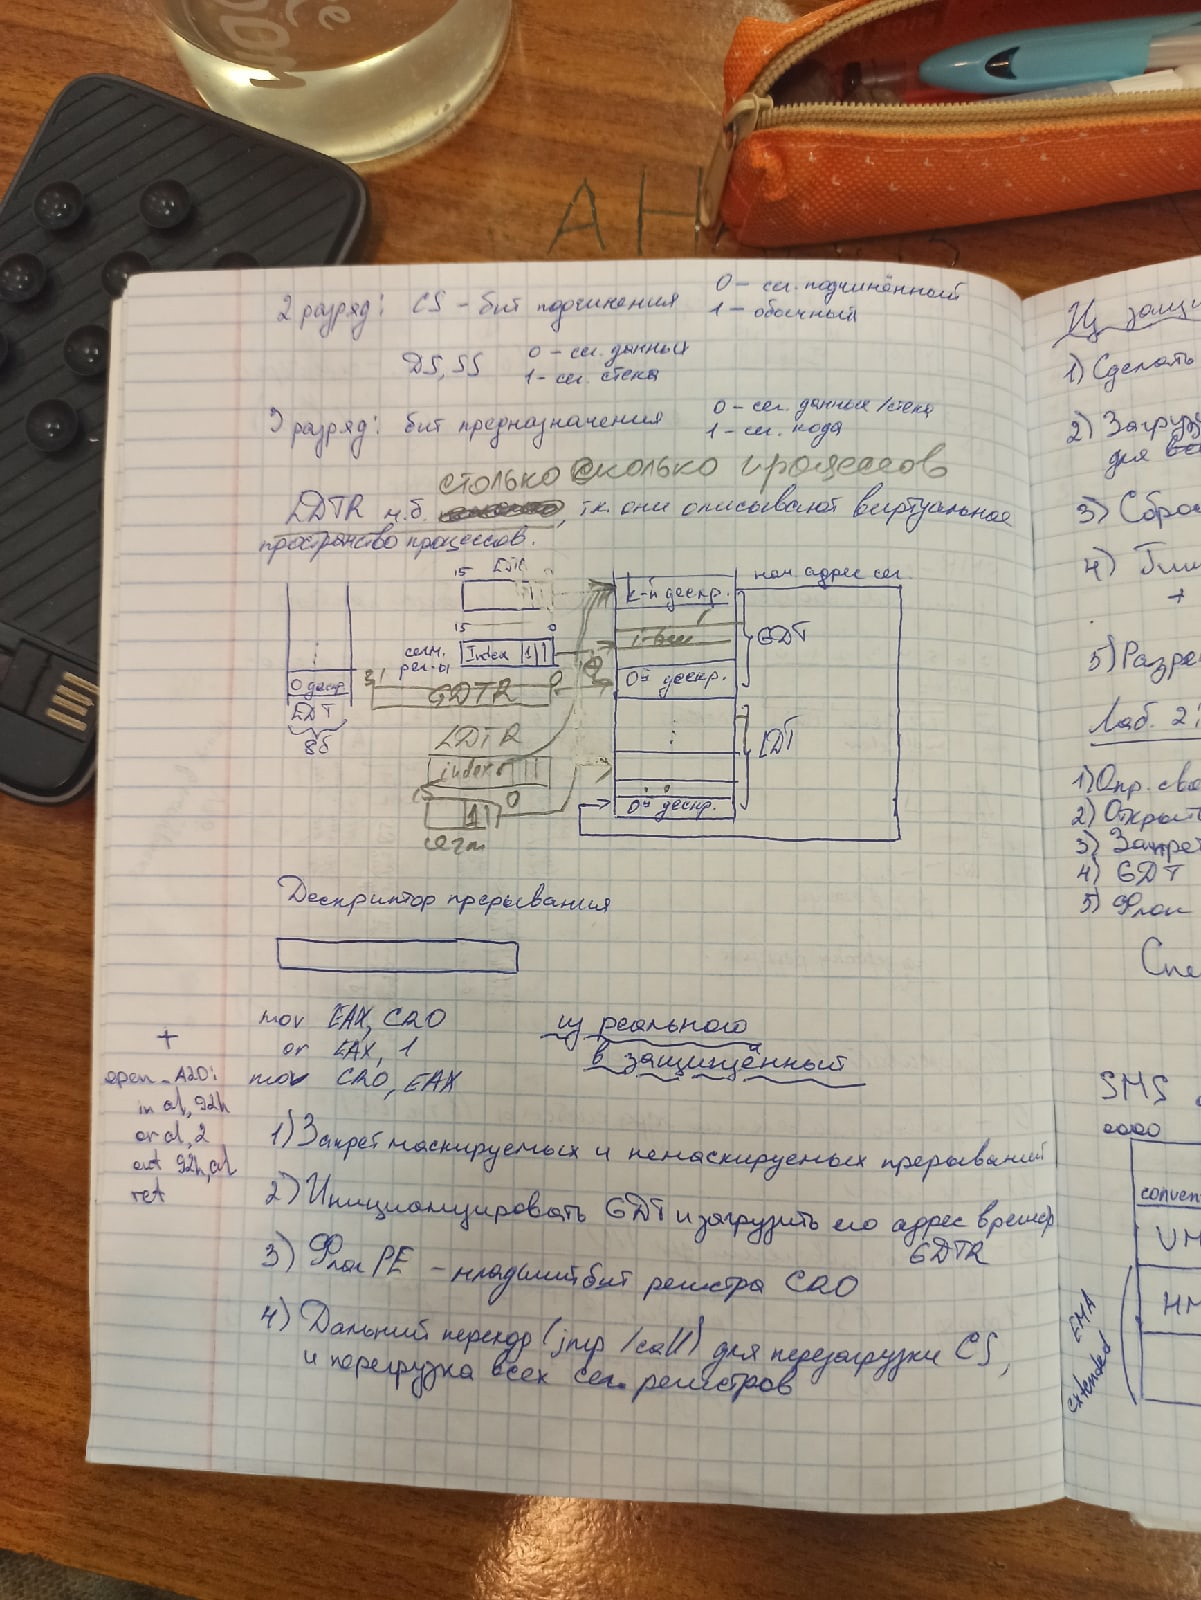 АН
2 разряд: CS – бит подчинения 0 – сег. подчинённый
1 – обычный
DS, SS 0 – сег. данных
1 – сег. стека
3 разряд: бит предназначения 0 – сег. данные/стека
1 – сег. кода
столько сколько процессов
LDTR м.б. , т.к. они описывают виртуальное
пространство процессов.
15 LDTR 0
нач. адрес сег.
к-й дескр.
15 0
сегм. рег-ы Index 1
GDT
0 дескр.
31 GDTR 0
0й дескр.
LDT
8б
LDTR
index
LDT
15 0
1
0й дескр.
сегм
Дескриптор прерывания
mov EAX, CR0
or EAX, 1
mov CR0, EAX
из реального
в защищённый
+
open_A20:
in al, 92h
or al, 2
out 92h, al
ret
1) Запрет маскируемых и немаскируемых прерываний
2) Инициализировать GDT и загрузить его адрес в регистр
GDTR
3) Флаг PE – младший бит регистра CR0
4) Дальний переход (jmp/call) для перезагрузки CS,
и перегрузка всех сег. регистров
Из защи
1) Сделать
2) Загруз
для все
3) Сбро
4)
+
5) Разре
Лаб. 2:
1) Опр. сво
2) Открыть
3) Запрет
4) GDT
5) Флаг
Спе
SMS
conven
UM
HM
EMA
extended